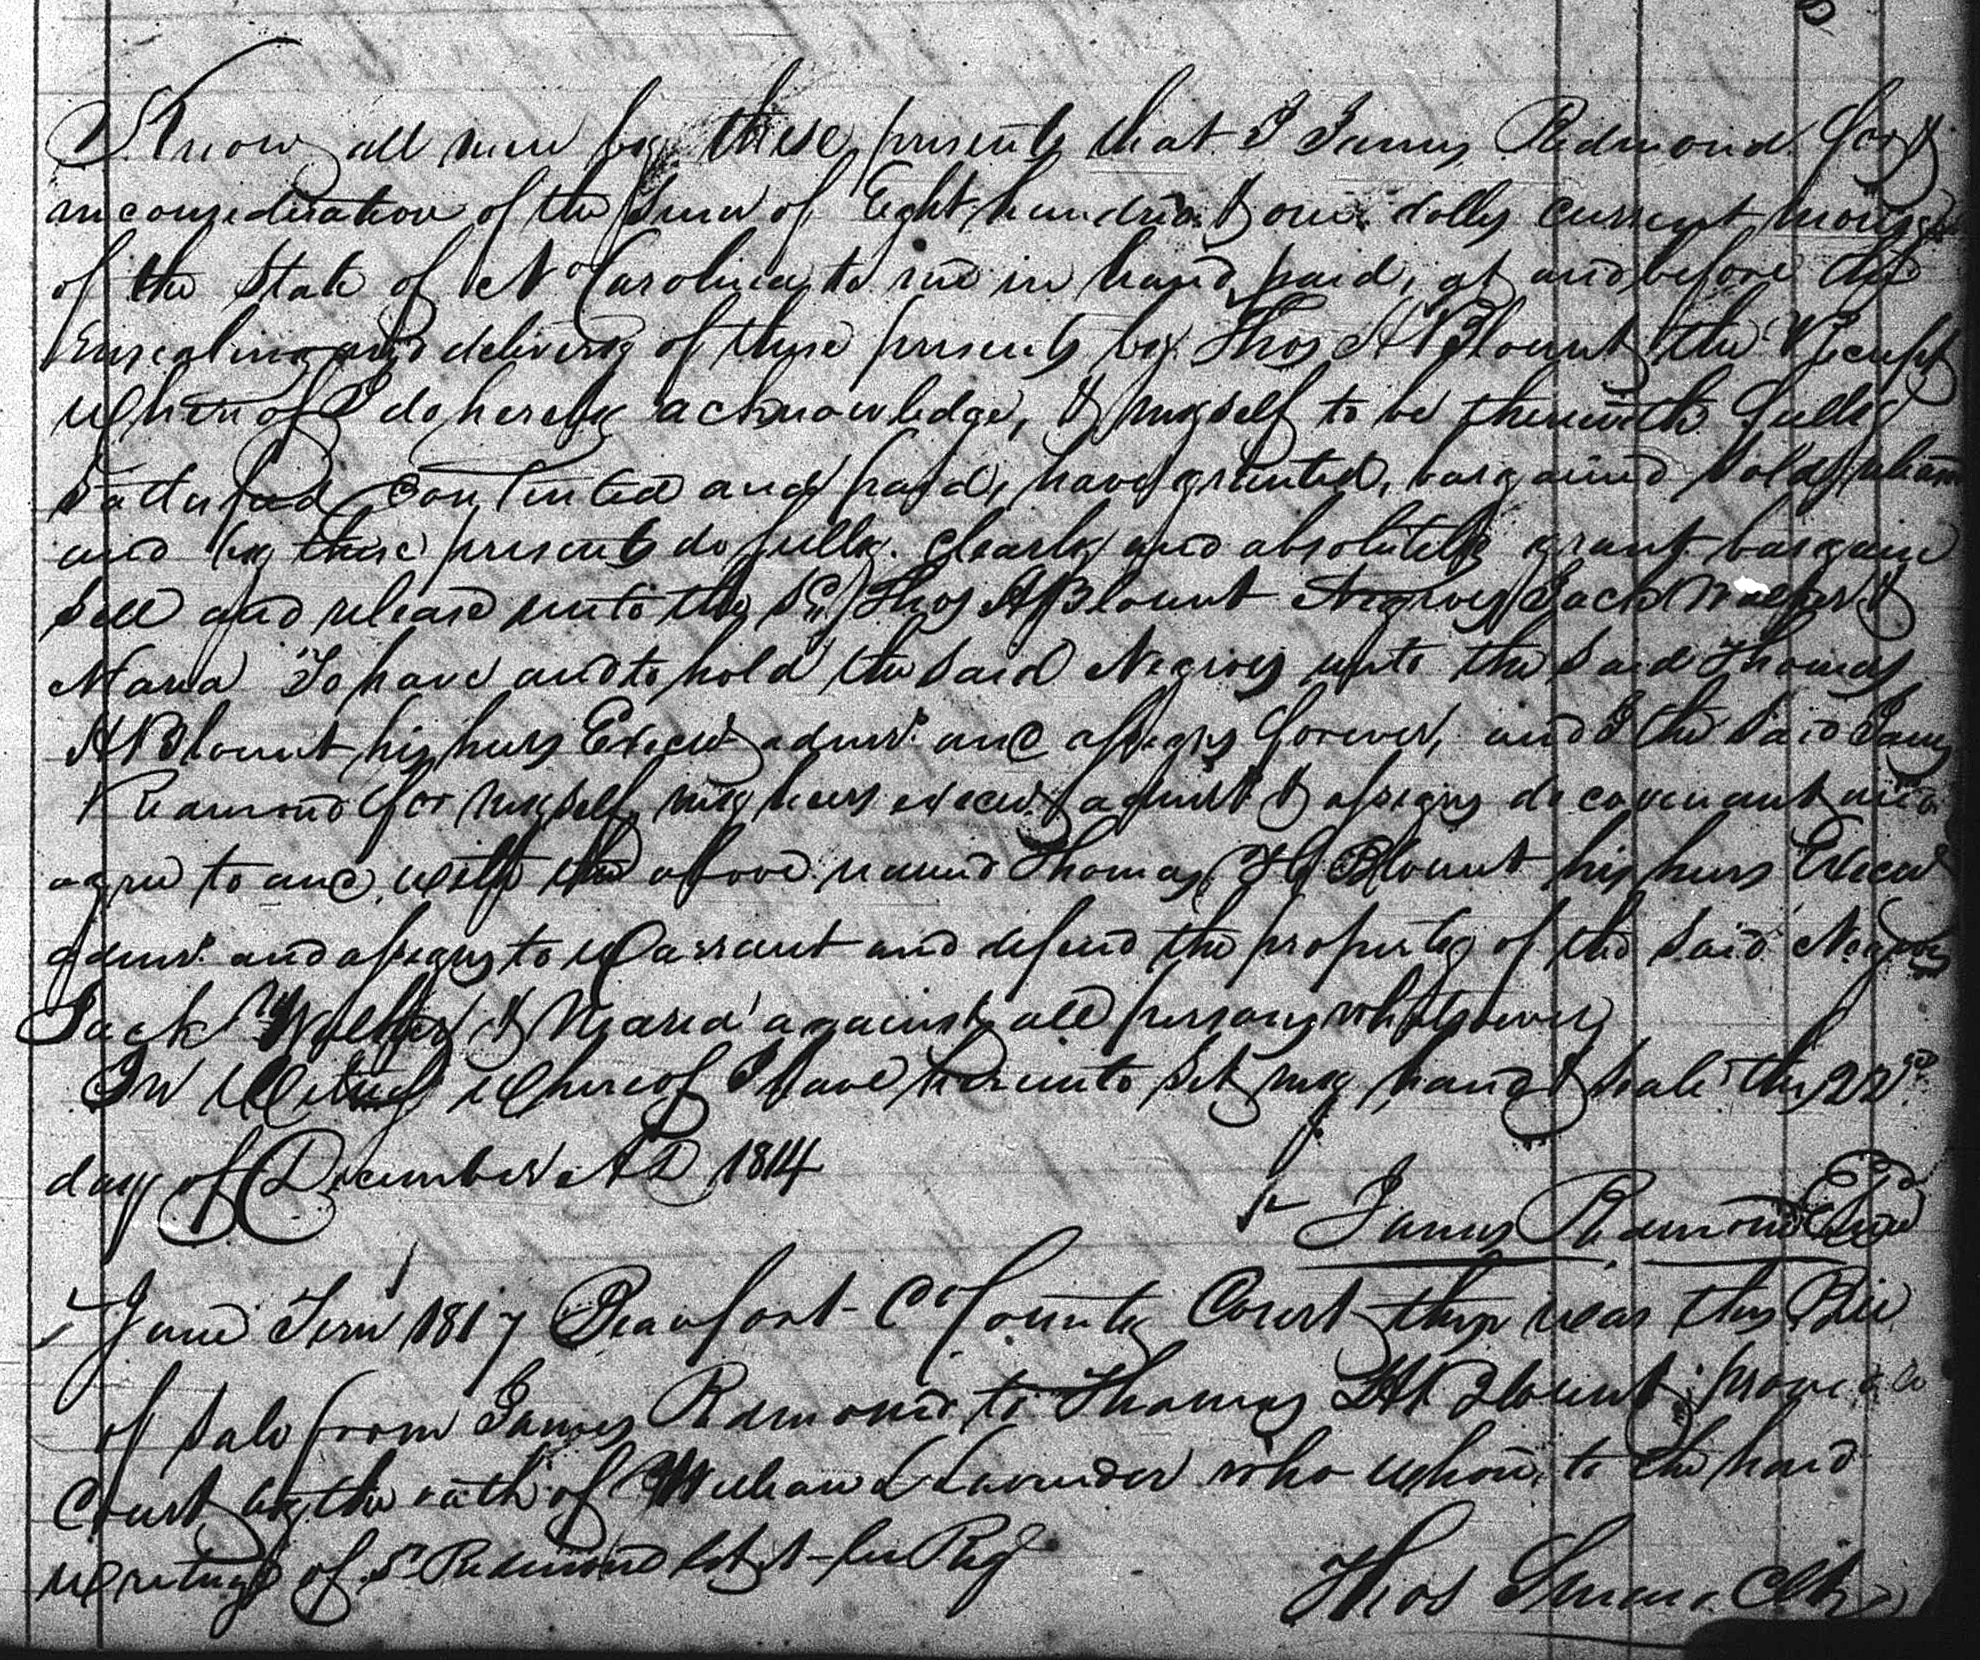 Know all men by these presents that I James Redmond for &
in consideration of the sum of Eight hundred & one dolls current money
of the State of No Carolina to me in hand paid, at and before the
Ensealing and delivery of these presents by Thos H Blount the Receipt
Whereof I do hereby acknowledge, & myself to be therewith fully
Sattisfied Contented and paid, have granted, bargained Sold
and by these presents do fully. clearly and absolutely grant bargain
Sell and release unto the sd. Thos H Blount Negroes Jack Walker &
Maria To have and to hold the Said Negroes unto the Said Thomas
H Blount his heirs Execrs admrs. and assigns forever, and I the Said James
Redmond for myself my heirs execrs admrs & assigns do covenant and
agree to and with the above named Thomas H Blount his heirs Execrs
admrs. and assigns to Warrant and defend the property of the Said Negroes
Jack Walker & Maria against all persons whatsoever
In Witness Whereof I have hereunto Set my hand & Seale this 22nd.
day of December AD 1814
James Redmond Seal
June Term 1817 Beaufort Co County Court then was this Bill
of Sale from James Redmond to Thomas H Blount proved in
Court by the oath of William Lavender who to the hand
writing of Sd Redmond let it be Reg
Thos Smaw Clk